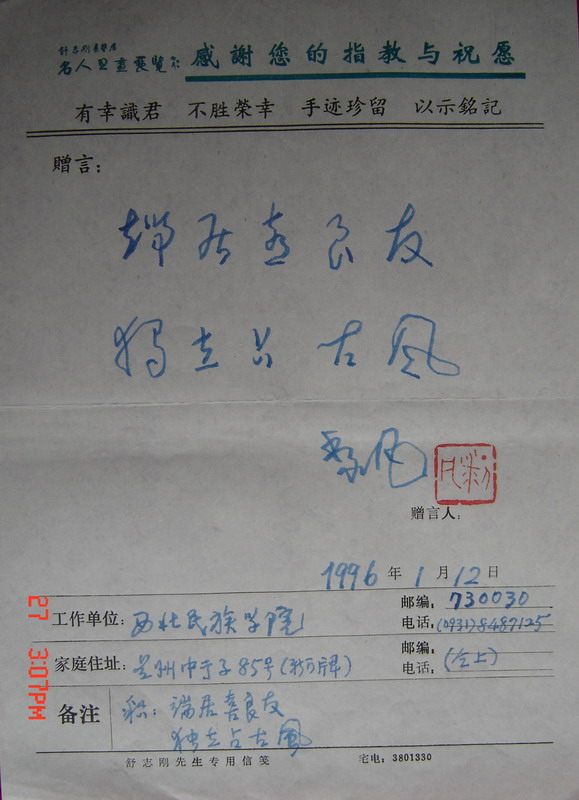 舒志刚素馨居
名人书画展览 感謝您的指教与祝愿
有幸識君 不胜榮幸 手迹珍留 以示銘記
赠言：
端居喜良友
獨立占古風
赠言人：
1996年1月12日
工作单位：西北民族学院 邮编：730030
电话：(0931)8487125
家庭住址：兰州中于子85号 邮编：
电话：(仝上)
备注 释：端居喜良友
独立占古風
舒志刚先生专用信笺 宅电：3801330
27 3:07PM